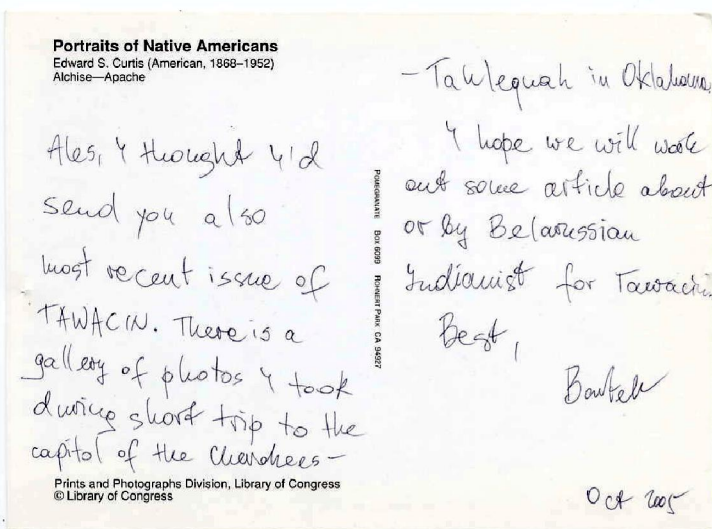 Portraits of Native Americans
Edward S. Curtis (American, 1868–1952)
Alchise—Apache
Ales, I thought I'd
send you also
most recent issue of
TAWACIN. There is a
gallery of photos I took
during short trip to the
capitol of the Cherokees –
Prints and Photographs Division, Library of Congress
© Library of Congress
POMEGRANATE BOX 6099 ROHNERT PARK CA 94927
– Tahlequah in Oklahoma.
I hope we will work
out some article about
or by Belarussian
Indianist for Tawacin.
Best,
Bartek
Oct 2005